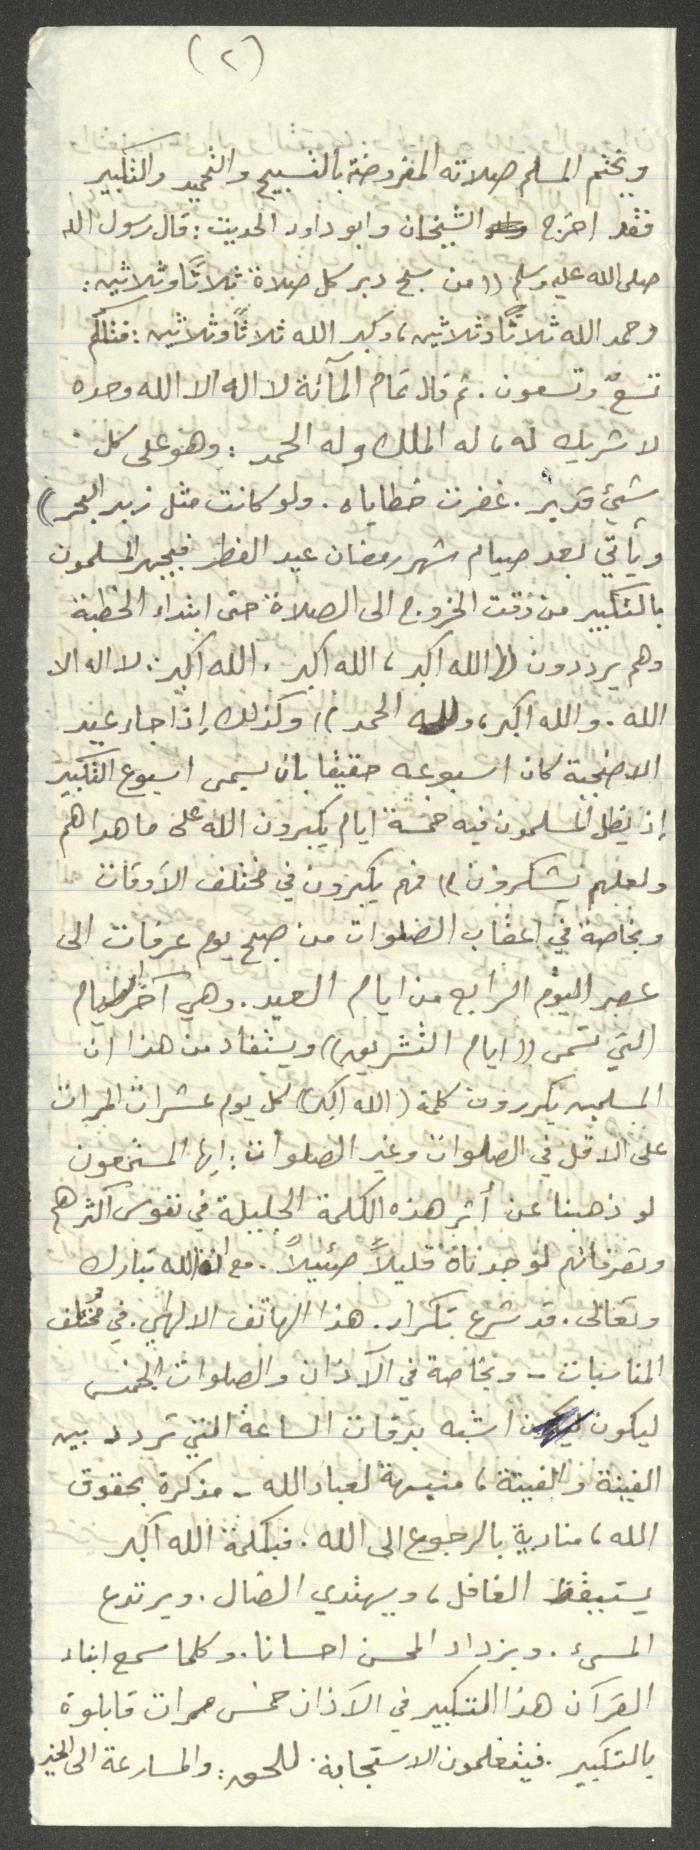 (٢)
ويختم المسلم صلاته المفروضة بالتسبيح والتحميد والتكبير
فقد اخرج الشيخان وابو داود الحديث : قال رسول الله
صلى الله عليه وسلم (( من سبح دبر كل صلاة ثلاثًا وثلاثين :
وحمد الله ثلاثًا وثلاثين ، وكبر الله ثلاثًا وثلاثين : فتلكم
تسعٌ وتسعون . ثم قال تمام المآئة لا اله الا الله وحده
لا شريك له ، له الملك وله الحمد : وهو على كل
شيئ قدير . غفرت خطاياه . ولو كانت مثل زبد البحر ))
ويأتي بعد صيام شهر رمضان عيد الفطر فيجهر المسلمون
بالتكبير من وقت الخروج الى الصلاة حتى ابتداء الخطبة
وهم يرددون (( الله اكبر ، الله اكبر . الله اكبر : لا اله الا
الله . والله اكبر ، ولله الحمد )) وكذلك إذا جاء عيد
الاضحية كان اسبوعه حقيقا بان يسمى اسبوع التكبير
إذ يظل المسلمون فيه خمسة ايام يكبرون الله على ما هداهم
ولعلهم يشكرون )) فهم يكبرون في مختلف الأوقات
وبخاصة في اعقاب الصلوات من صبح يوم عرفات الى
عصر اليوم الرابع من ايام العيد . وهي آخر الايام
التي تسمى (( ايام التشريق )) ويستفاد من هذا ان
المسلمين يكررون كلمة (الله اكبر) كل يوم عشرات المرات
على الاقل في الصلوات وغير الصلوات : ايها المستمعون
لو ذهبنا عن أثر هذه الكلمة الجليلة في نفوس أكثرهم
وتصرفاتهم لوجدناه قليلاً ضئيلاً . مع ان الله تبارك
وتعالى . قد شرع تكرار . هذا الهاتف الالهي . في مُختلف
المناسبات - وبخاصة في الآذان والصلوات الخمس
ليكون اشبه بدقات الساعة التي تردد بين
الفينة والفينة ، منبهة لعباد الله - مذكرة بحقوق
الله ، منادية بالرجوع الى الله . فبكلمة الله اكبر
يستيقظ الغافل ، ويهتدي الضال . ويرتدع
المسيء . ويزداد المحسن احسانا . وكلما سمع ابناء
القرآن هذا التكبير في الآذان خمس مرات قابلوه
بالتكبير . فيتعلمون الاستجابة . للحق : والمسارعة الى الخير